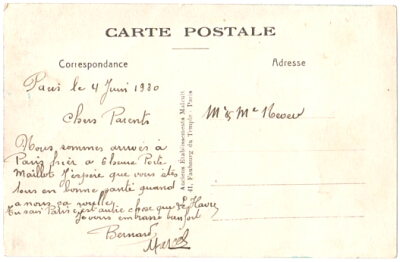 CARTE POSTALE
Correspondance
Adresse
Paris le 4 Juin 1930
Chers Parents
Nous sommes arrivés à
Paris hier a 6 heure Porte
Maillot J'espère que vous êtes
tous en bonne santé quand
a nous ça
Tu sais Paris c'est autre chose que le Havre
Je vous embrasse bien fort
Bernard
Marcel
Anciens Etablissements Malcuit
41, Faubourg du Temple - Paris
Mr & Me